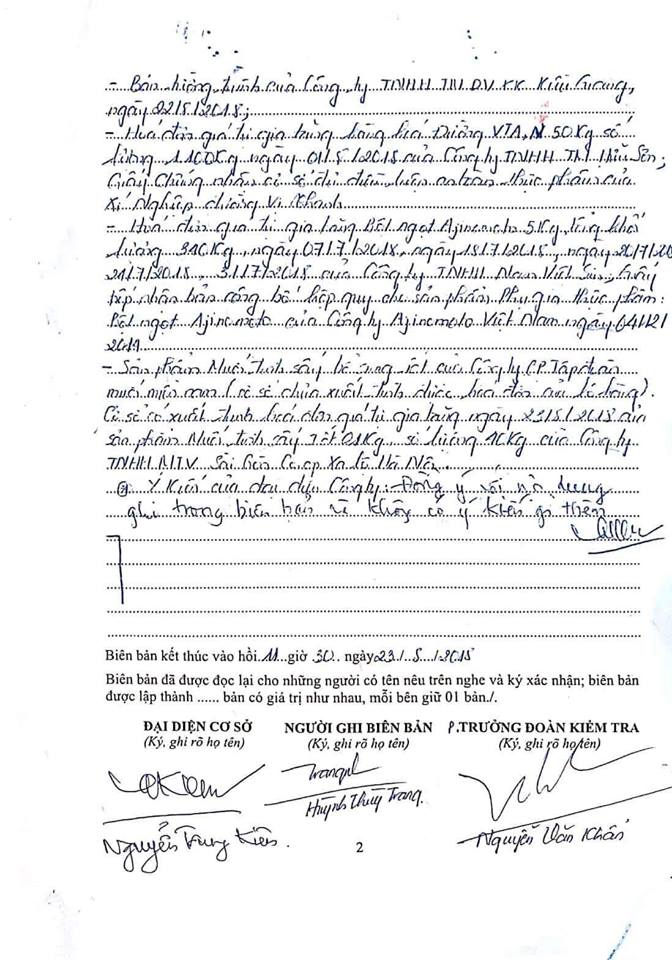 - Bản tường trình của Công ty TNHH TM DV KK Kiều Giang,
ngày 22/5/2018;
- Hoá đơn giá trị gia tăng hàng hoá Đường VTA, N 50Kg số
lượng 1.100Kg ngày 01/5/2018 của Công ty TNHH TM Hữu Sơn;
Giấy Chứng nhận cơ sở đủ điều kiện an toàn thực phẩm của
Xí Nghiệp đường Vị Thanh
- Hoá đơn giá trị gia tăng Bột ngọt Ajinomoto 5Kg, tổng khối
lượng 340Kg, ngày 07/7/2018, ngày 18/7/2018, ngày 20/7/20
24/7/2018, 31/7/2018 của Công ty TNHH Nam Việt; Giấy
tiếp nhận bản công bố hợp quy cho sản phẩm: Phụ gia thực phẩm:
Bột ngọt Ajinomoto của Công ty Ajinomoto Việt Nam ngày 04/12/
- Sản phẩm Muối tinh sấy của Công ty CP Tập đoàn
muối miền nam (cơ sở chưa xuất trình được hoá đơn lô hàng).
Cơ sở có xuất trình hoá đơn giá trị gia tăng ngày 23/5/2018 của
sản phẩm Muối tinh sấy Iốt 01Kg số lượng 10Kg của Công ty
TNHH MTV Sài Gòn Co.op Xa lộ Hà Nội
Ý Kiến của đại diện Công ty: Đồng ý với nội dung
ghi trong biên bản và không có ý kiến gì thêm
Biên bản kết thúc vào hồi 11 giờ 30 ngày 23/5/2018
Biên bản đã được đọc lại cho những người có tên nêu trên nghe và ký xác nhận; biên bản
được lập thành ...... bản có giá trị như nhau, mỗi bên giữ 01 bản./.
ĐẠI DIỆN CƠ SỞ NGƯỜI GHI BIÊN BẢN P.TRƯỞNG ĐOÀN KIỂM TRA
(Ký, ghi rõ họ tên) (Ký, ghi rõ họ tên) (Ký, ghi rõ họ tên)
Trang
Huỳnh Thùy Trang
Nguyễn Trung Kiên. Nguyễn Văn Khán
2